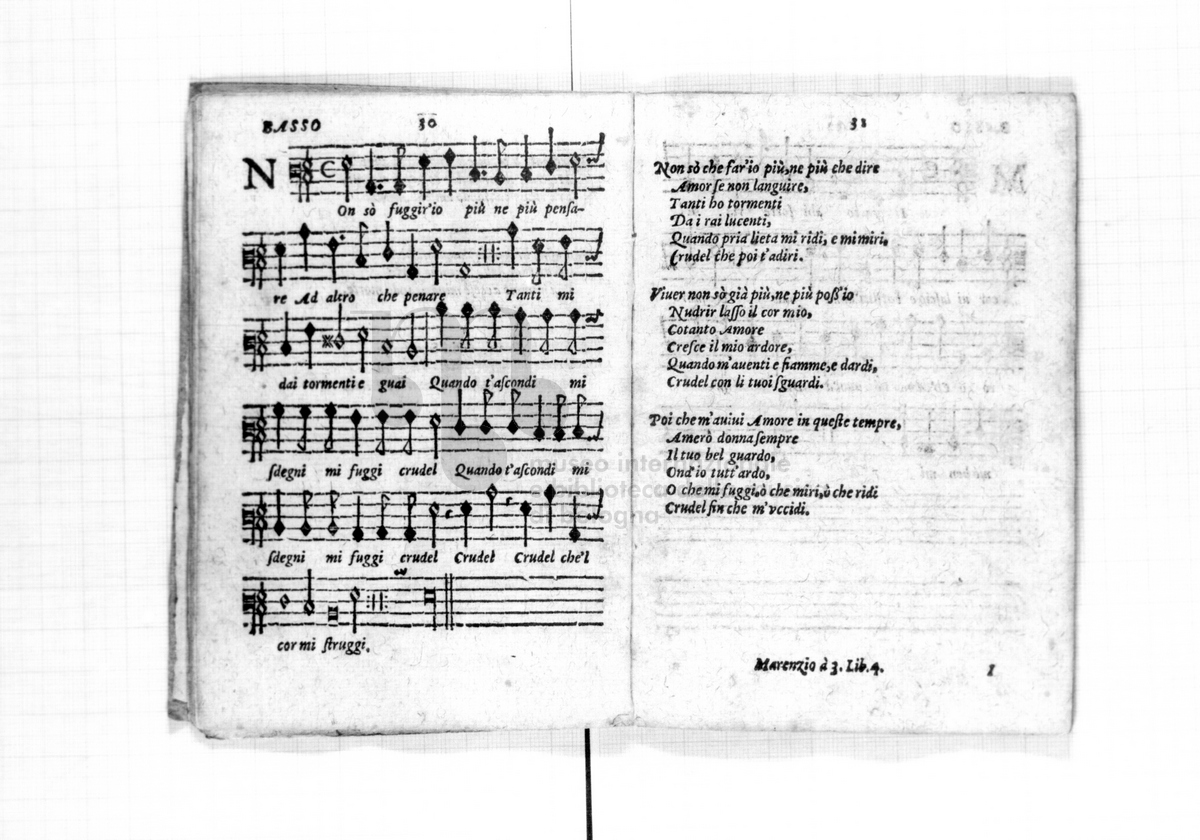 BASSO 30
NOn sò fuggir'io più ne più pensa-
re Ad altro che penare Tanti mi
dai tormenti e guai Quando t'ascondi mi
sdegni mi fuggi crudel Quando t'ascondi mi
sdegni mi fuggi crudel Crudel Crudel che'l
cor mi struggi.
Non sò che far'io più, ne più che dire
Amor se non languire,
Tanti ho tormenti
Da i rai lucenti,
Quando pria lieta mi ridi, e mi miri,
Crudel che poi t'adiri.
Viuer non sò già più, ne più poss'io
Nudrir lasso il cor mio,
Cotanto Amore
Cresce il mio ardore,
Quando m'auenti e fiamme, e dardi,
Crudel con li tuoi sguardi.
Poi che m'auiui Amore in queste tempre,
Amerò donna sempre
Il tuo bel guardo,
Ond'io tutt'ardo,
O che mi fuggi, ò che miri, ò che ridi
Crudel fin che m'vccidi.
Marenzio à 3. Lib. 4. I